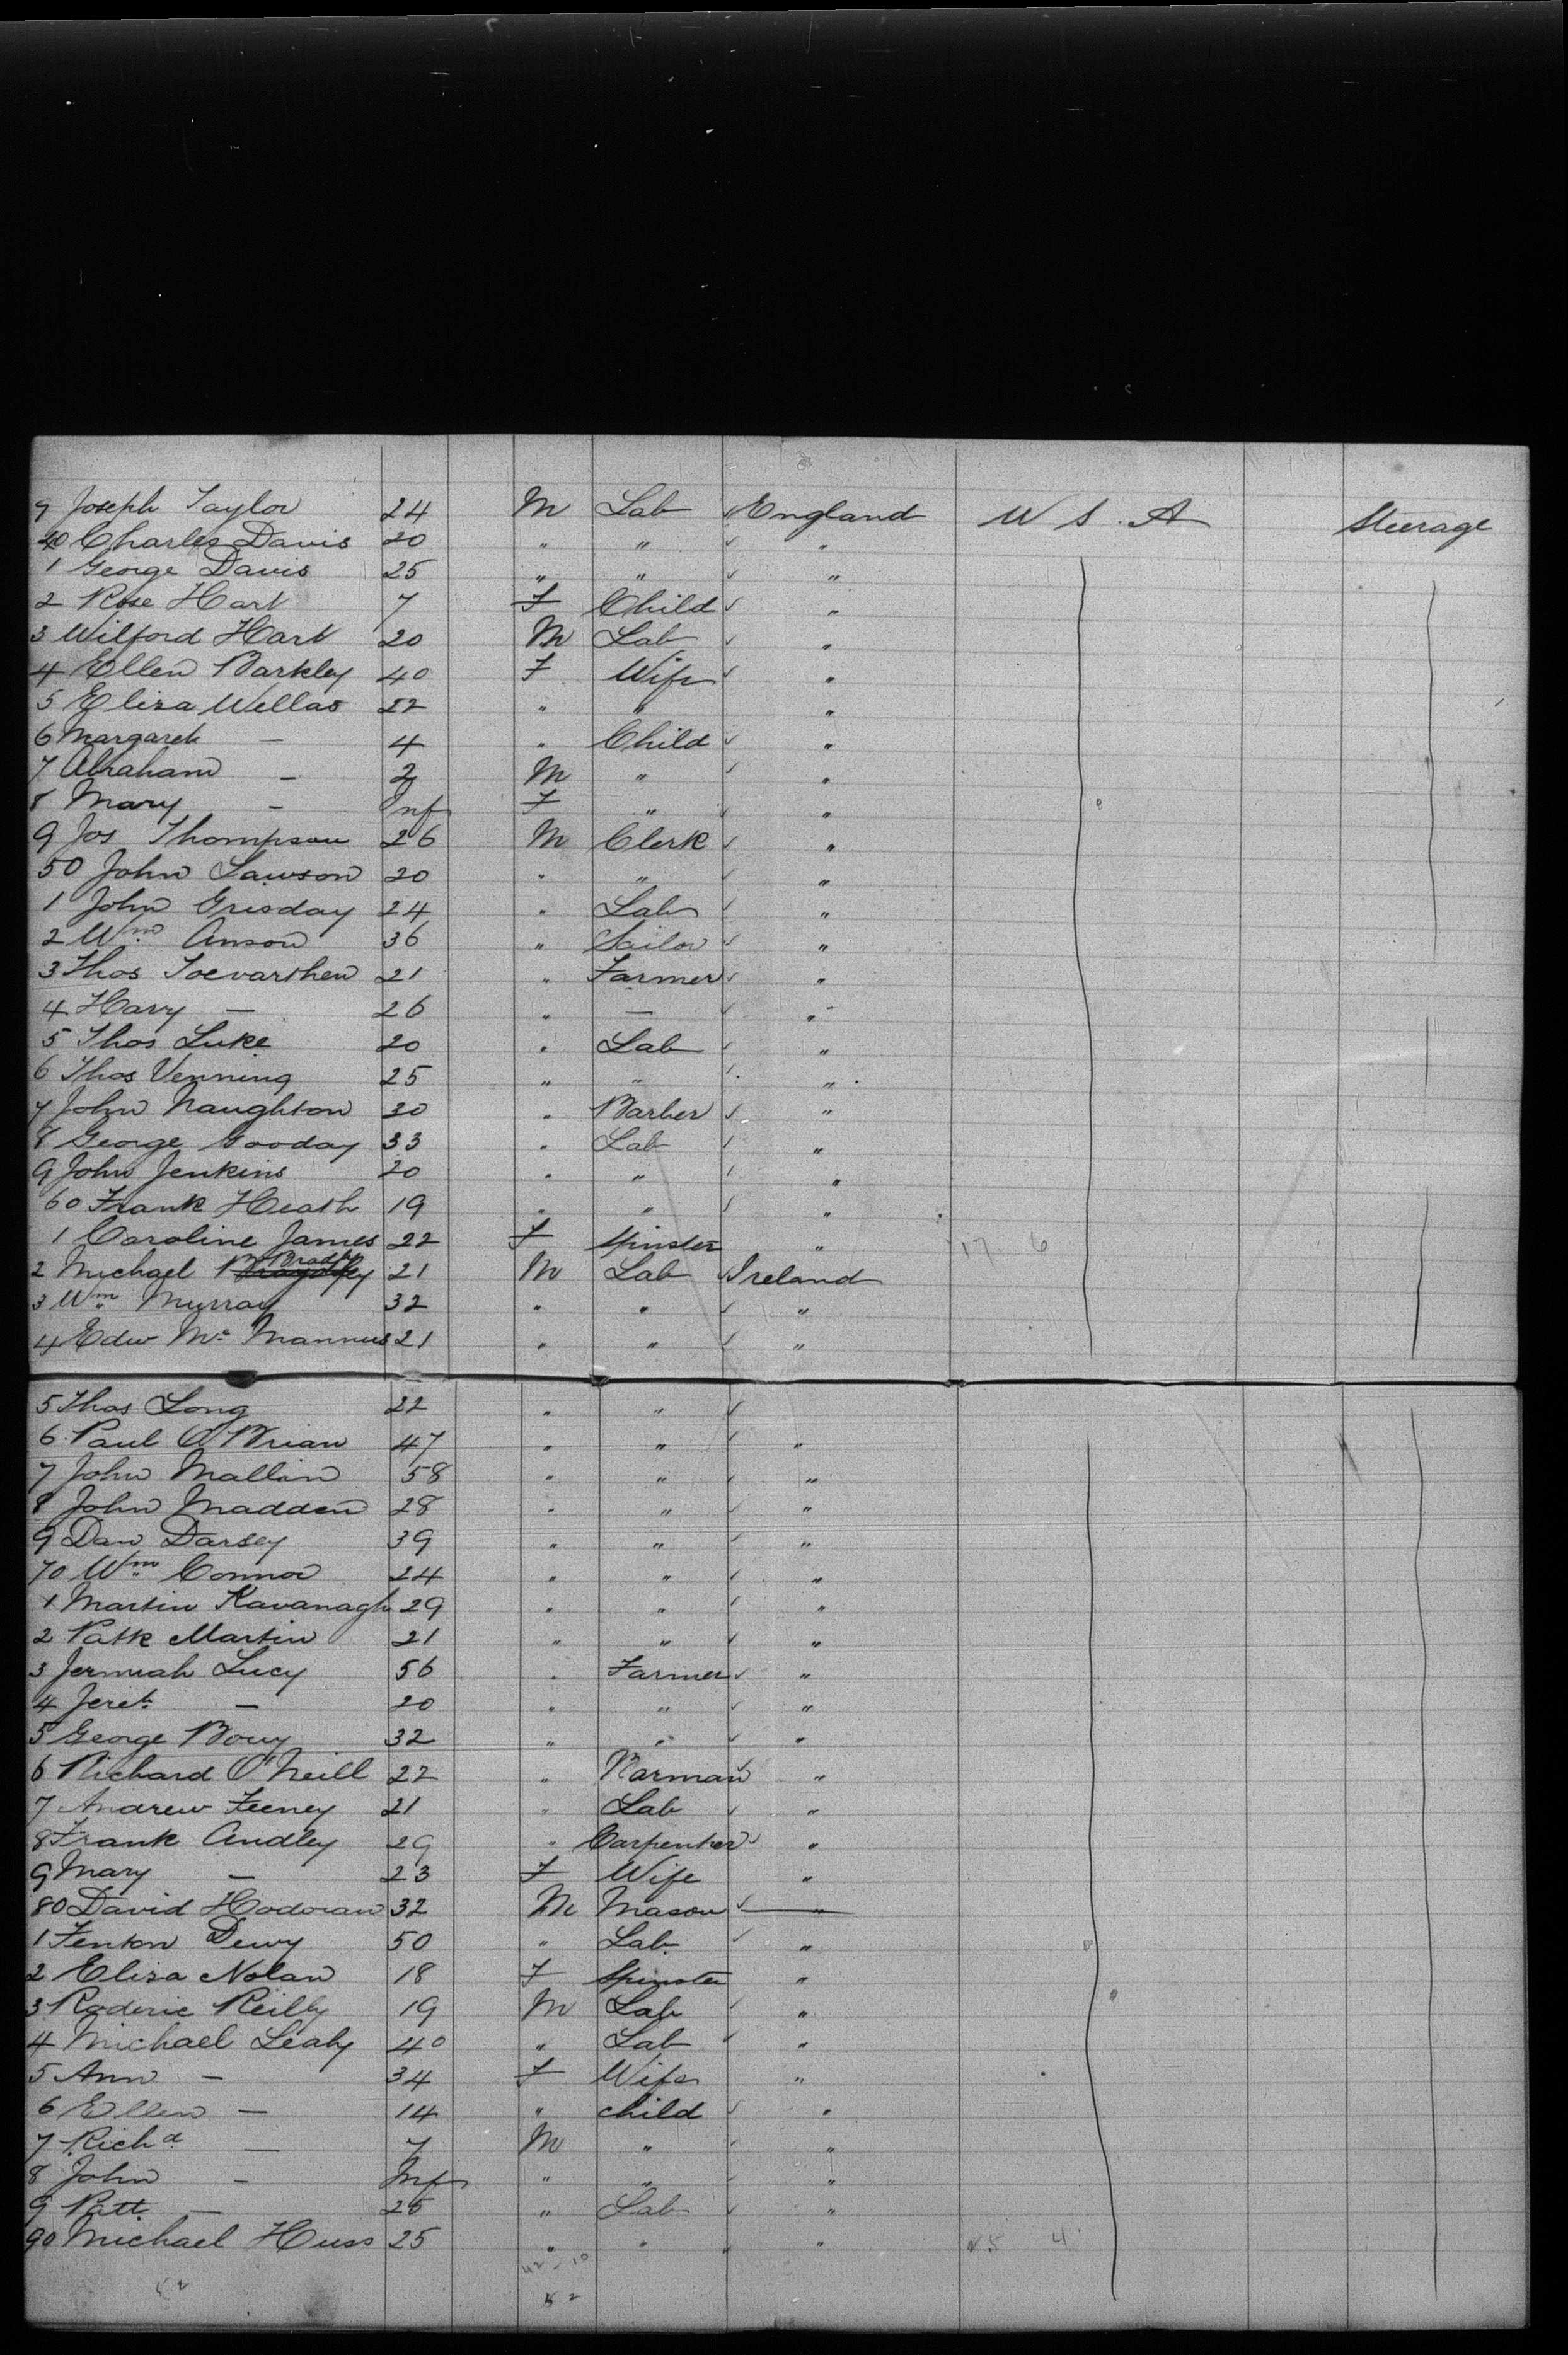 9 Joseph Taylor 24 M Lab England U S. A Steerage
40 Charles Davis 20 " " "
1 George Davis 25 " " "
2 Rose Hart 7 F Child "
3 Wilford Hart 20 M Lab "
4 Ellen Barkley 40 F Wife "
5 Eliza Wellas 22 " " "
6 Margaret — 4 " Child "
7 Abraham — 2 M " "
8 Mary — Inf F " "
9 Jos Thompson 26 M Clerk "
50 John Lawson 20 " " "
1 John Grisday 24 " Lab "
2 Wm Anson 36 " Sailor "
3 Thos 21 " Farmer "
4 Harry — 26 " — "
5 Thos Luke 20 " Lab "
6 Thos Venning 25 " " "
7 John Naughton 30 " Barber "
8 George Gooday 33 " Lab "
9 John Jenkins 20 " " "
60 Frank Heath 19 " " "
1 Caroline James 22 F Spinster " 17 6
2 Michael 21 M Lab Ireland
3 Wm Murray 32 " " "
4 Edw Mc Mannus 21 " " "
5 Thos Long 22 " "
6 Paul O'Brian 47 " " "
7 John Mallin 58 " " "
8 John Madden 28 " " "
9 Dan Darsey 39 " " "
70 Wm Connor 24 " " "
1 Martin Kavanagh 29 " " "
2 Patk Martin 21 " " "
3 Jermiah Lucy 56 " Farmer "
4 Jereh — 20 " " "
5 George 32 " " "
6 Richard O'Neill 22 " Barman "
7 Andrew Feeney 21 " Lab "
8 Frank Audley 29 " Carpenter "
9 Mary — 23 F Wife "
80 David Hodoran 32 M Mason "
1 Fenton Dewy 50 " Lab "
2 Eliza Nolan 18 F Spinster "
3 Roderic Reilly 19 M Lab "
4 Michael Leahy 40 " Lab "
5 Ann — 34 F Wife "
6 Ellen — 14 " child "
7 Richd — 7 M " "
8 John — Inf " " "
9 Patt — 25 " Lab "
90 Michael Huss 25 " " " 25 4
52